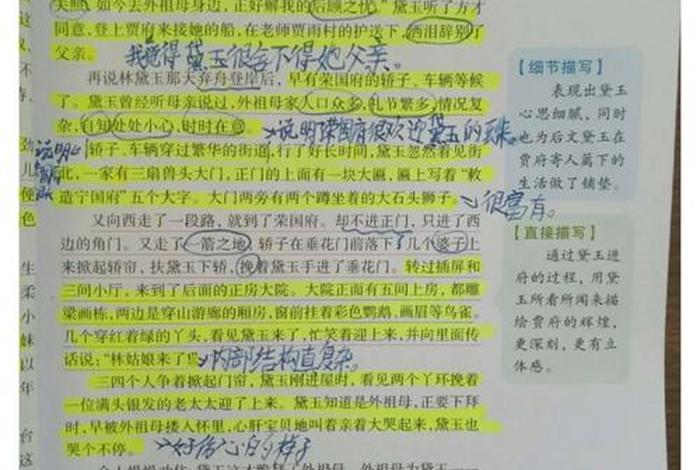 关照，如今去外祖母身边，正好解我的后顾之忧。”黛玉听了方才
同意，登上贾府来接她的船，在老师贾雨村的护送下，洒泪辞别了
父亲。
我觉得黛玉很舍不得她父亲。
再说林黛玉那天弃舟登岸后，早有荣国府的轿子、车辆等候
了。黛玉曾经听母亲说过，外祖母家人口众多，礼节繁多，情况复
杂，自知处处小心，时时在意。
说明荣国府很欢迎黛玉的到来
轿子、车辆穿过繁华的街道，行了好长时间，黛玉忽然看见街
北，一家有三扇兽头大门，正门的上面有一块大匾，匾上写着“敕
造宁国府”五个大字。大门两旁有两个蹲着的大石头狮子。
很富有。
又向西走了一段路，就到了荣国府。却不进正门，只进了西
边的角门。又走了一箭之地，轿子在垂花门前落下，几个婆子上
来掀起轿帘，扶黛玉下轿，挽着黛玉手进了垂花门。转过插屏和
三间小厅，来到了后面的正房大院。大院正面有五间上房，都雕
梁画栋，两边是穿山游廊的厢房，窗前挂着彩色鹦鹉，画眉等鸟雀。
几个穿红着绿的丫头，看见黛玉来了，忙笑着迎上来，并向里面传
话说：“林姑娘来了！”
内部结构真复杂。
三四个人争着掀起门帘，黛玉刚进屋时，看见两个丫环挽着
一位满头银发的老太太迎了上来。黛玉知道是外祖母，正要下拜
时，早被外祖母搂入怀里，心肝宝贝地叫着亲着大哭起来，黛玉也
哭个不停。
好伤心的样子
【细节描写】
表现出黛玉
心思细腻，同时
也为后文黛玉在
贾府寄人篱下的
生活做了铺垫。
【直接描写】
通过黛玉进
府的过程，用黛
玉所看所闻来描
绘贾府的辉煌，
更深刻，更有立
体感。
劲
儿
便
色
生
柔
小
妹
以
年
台
这